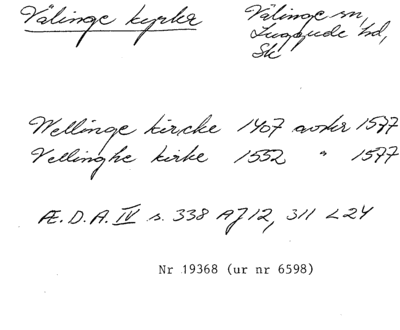 Välinge kyrka Välinge sn,
Luggude hd,
Sk
Wellinge kircke 1407 avskr 1577
Vellinghe kirke 1552 " 1577
Æ.D.A. IV s. 338 AJ12, 311 L24
Nr 19368 (ur nr 6598)